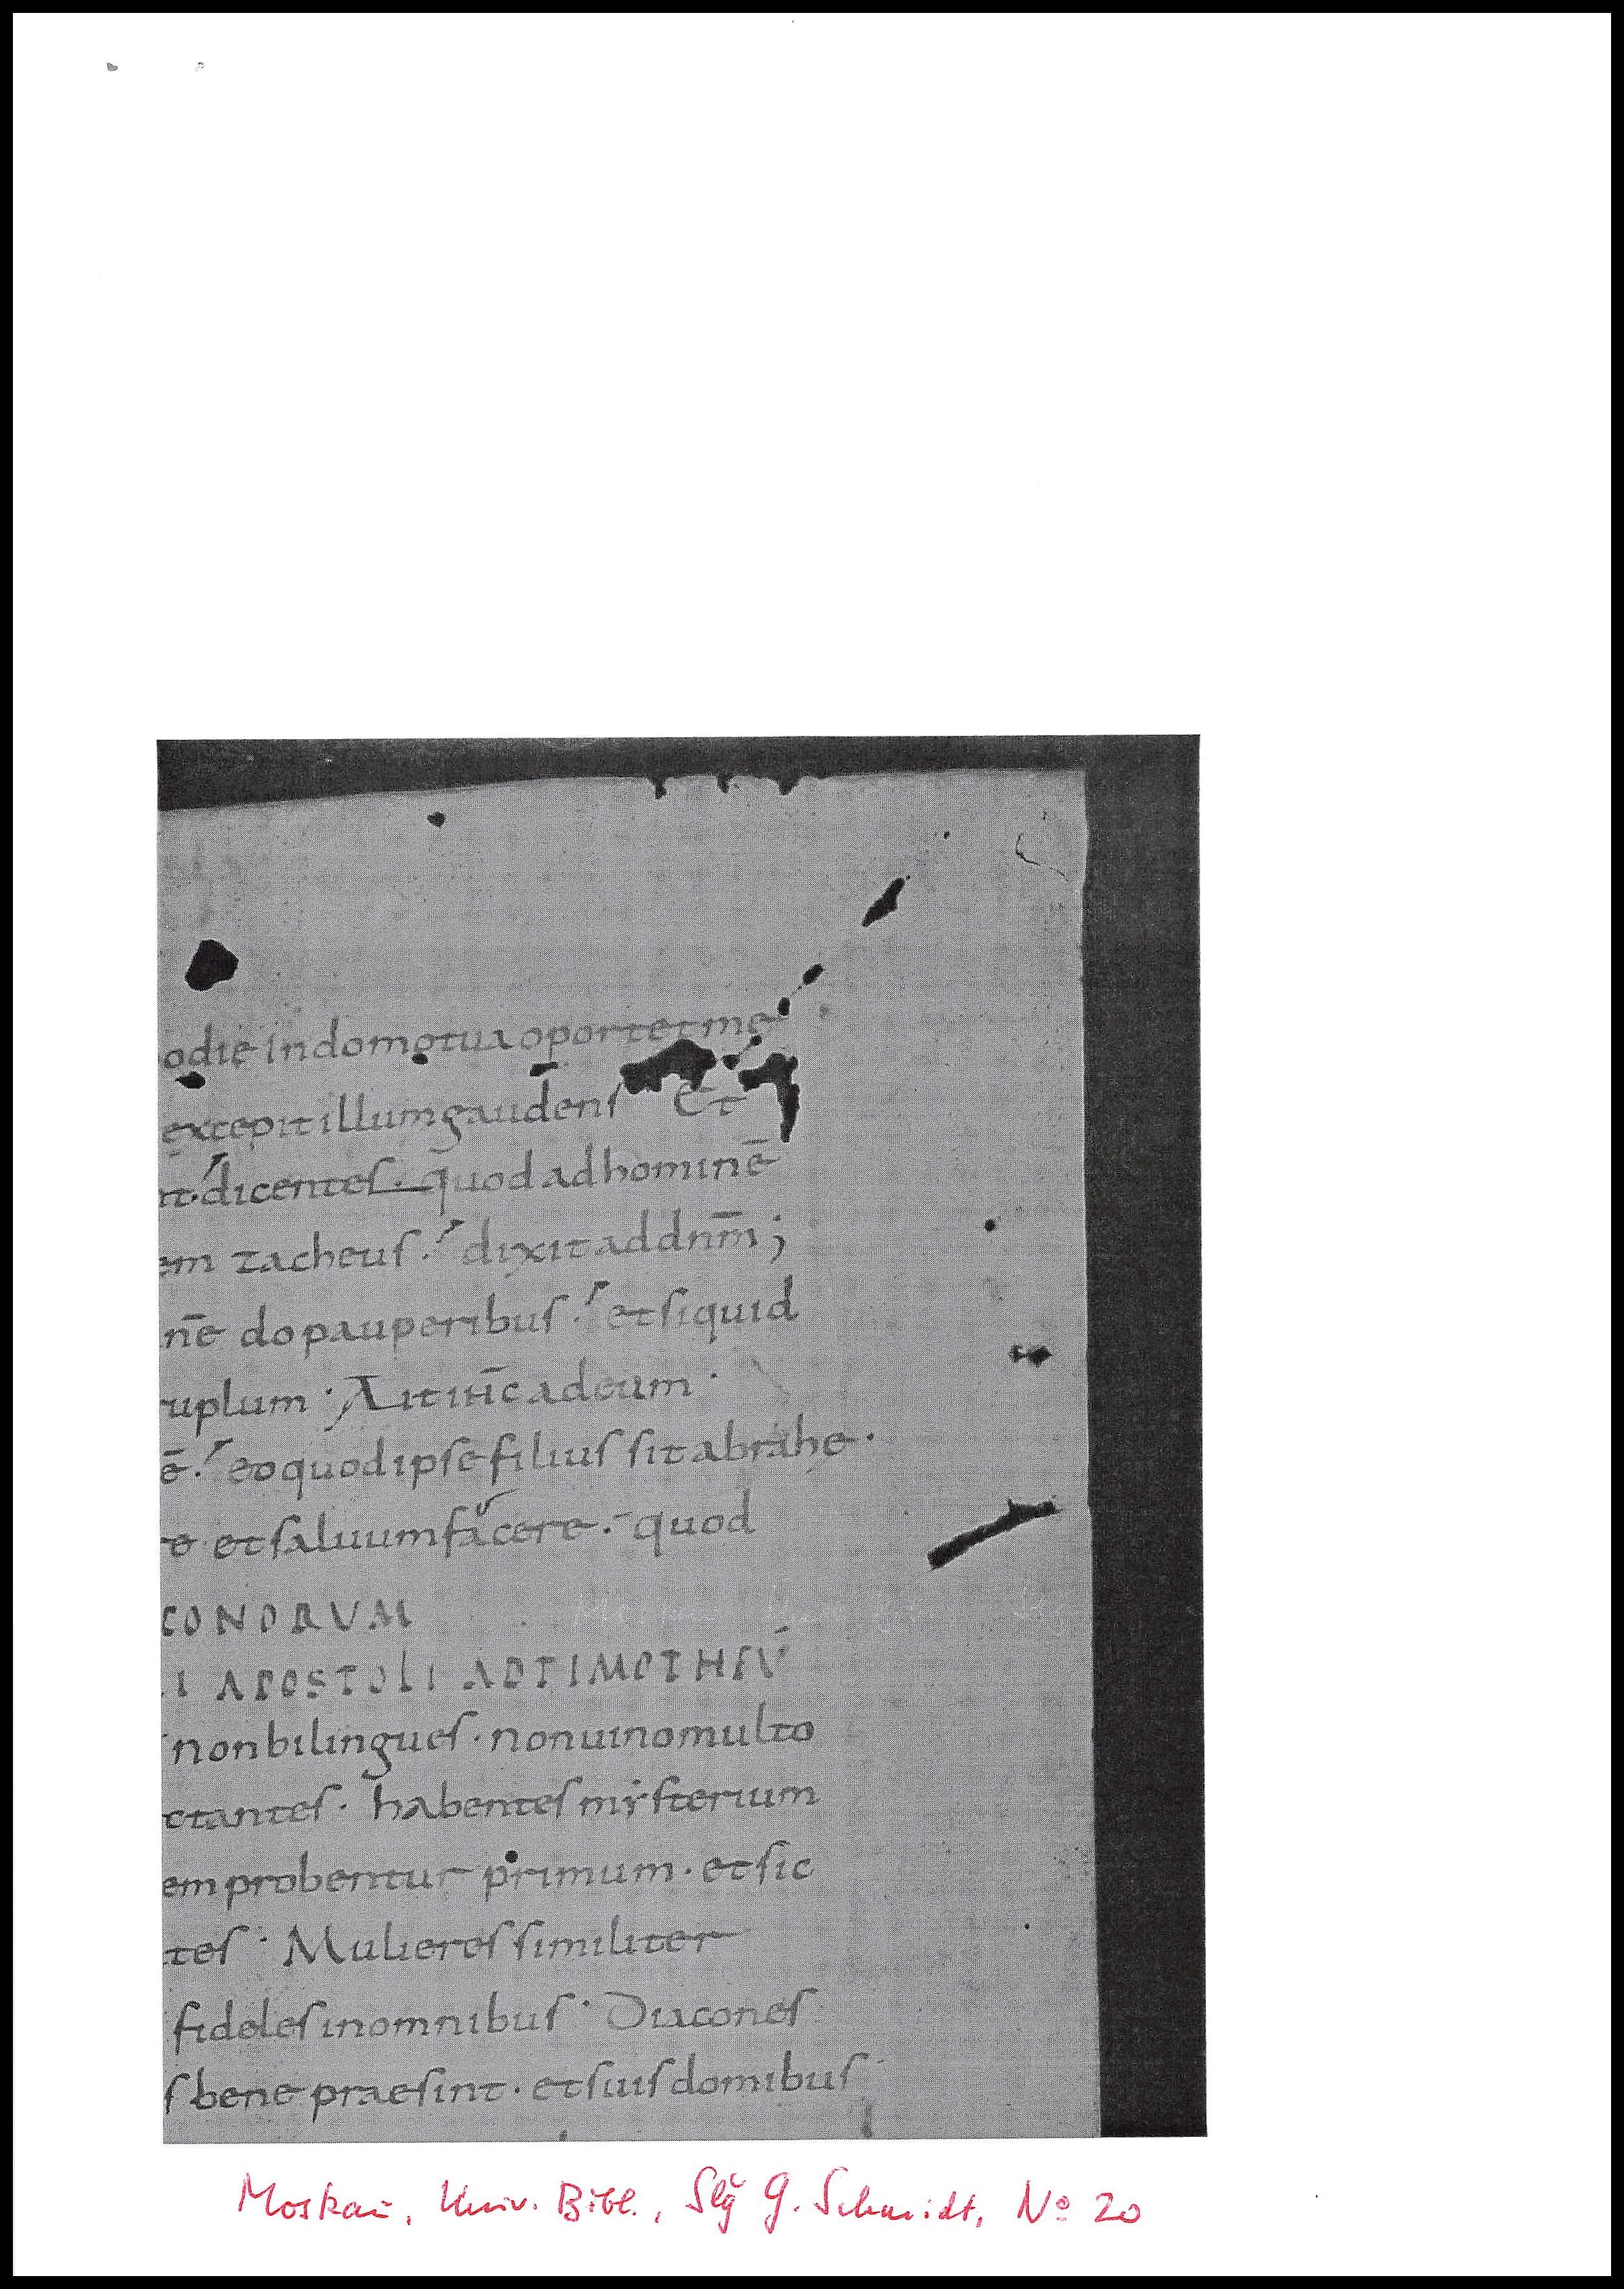 odie indomotua oportet me
excepit illum gaudens Et
nt. dicentes. quod ad hominē
em zacheus. dixit ad dnm̄;
nē do pauperibus. et siquid
uplum. Ait ih̄c ad eum.
ē. eo quod ipse filius sit abrahę.
e et saluum facere. quod
CONORUM
LI APOSTOLI AD TIMOTHEŪ
non bilingues. non uino multo
ctantes. habentes mẏsterium
em probentur primum. et sic
tes. Mulieres similiter
fideles inomnibus. Diacones
s bene praesint. et suis domibus
Moskau, Univ. Bibl., Slg G. Schmidt, No 20